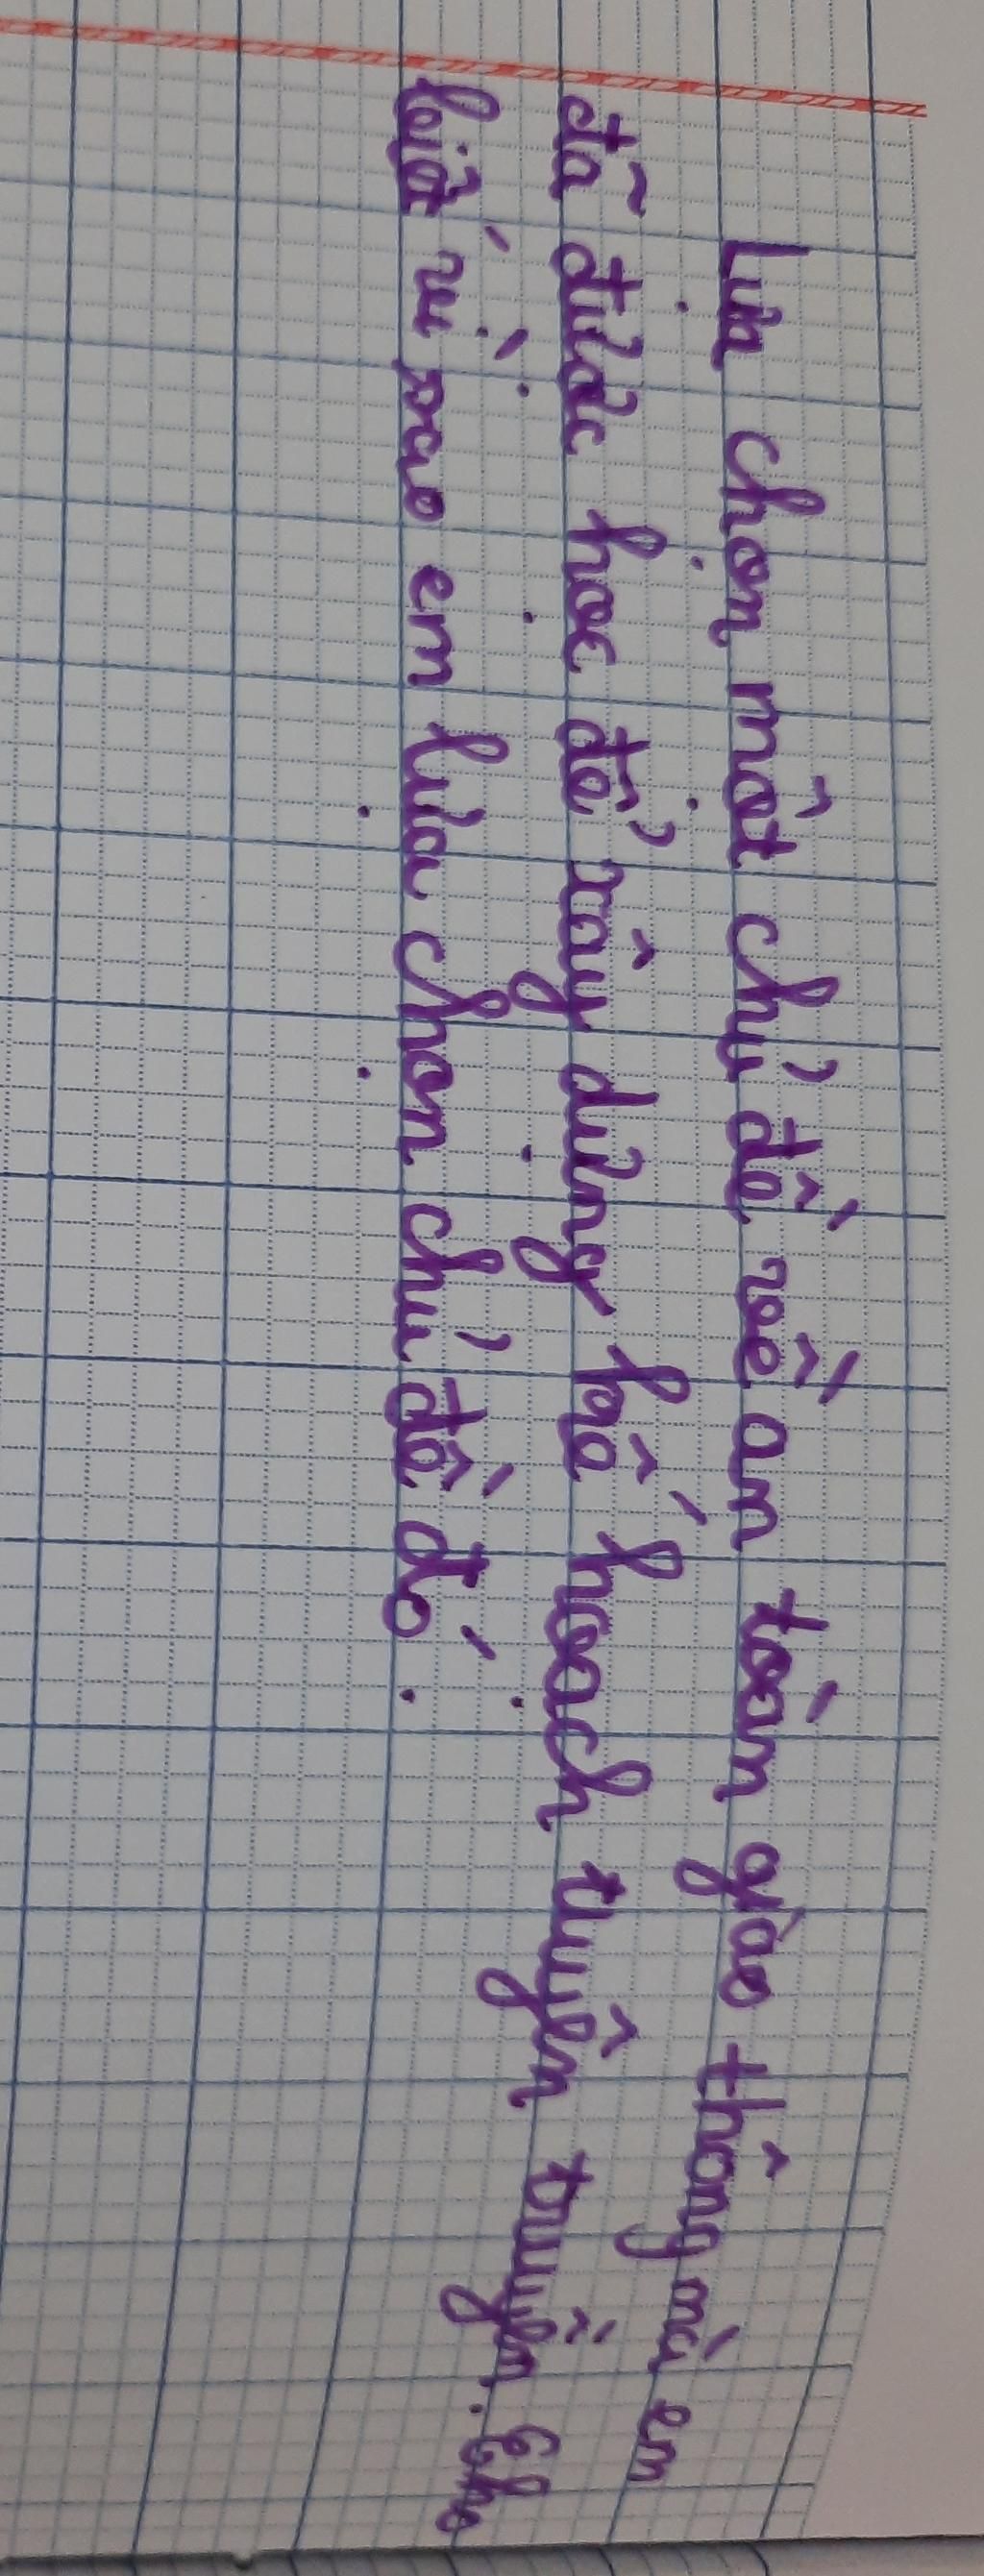 Lựa chọn một chủ đề về an toàn giao thông mà em
đã được học để xây dựng kế hoạch tuyên truyền. Cho
biết vì sao em lựa chọn chủ đề đó.